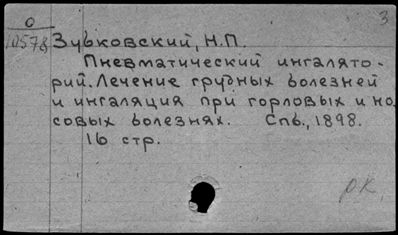 О
3
10578 Зубковский, Н.П.
Пневматический ингалято-
рий. Лечение грудных болезней
и ингаляция при горловых и но-
совых болезнях. Спб., 1898.
16 стр.
рк